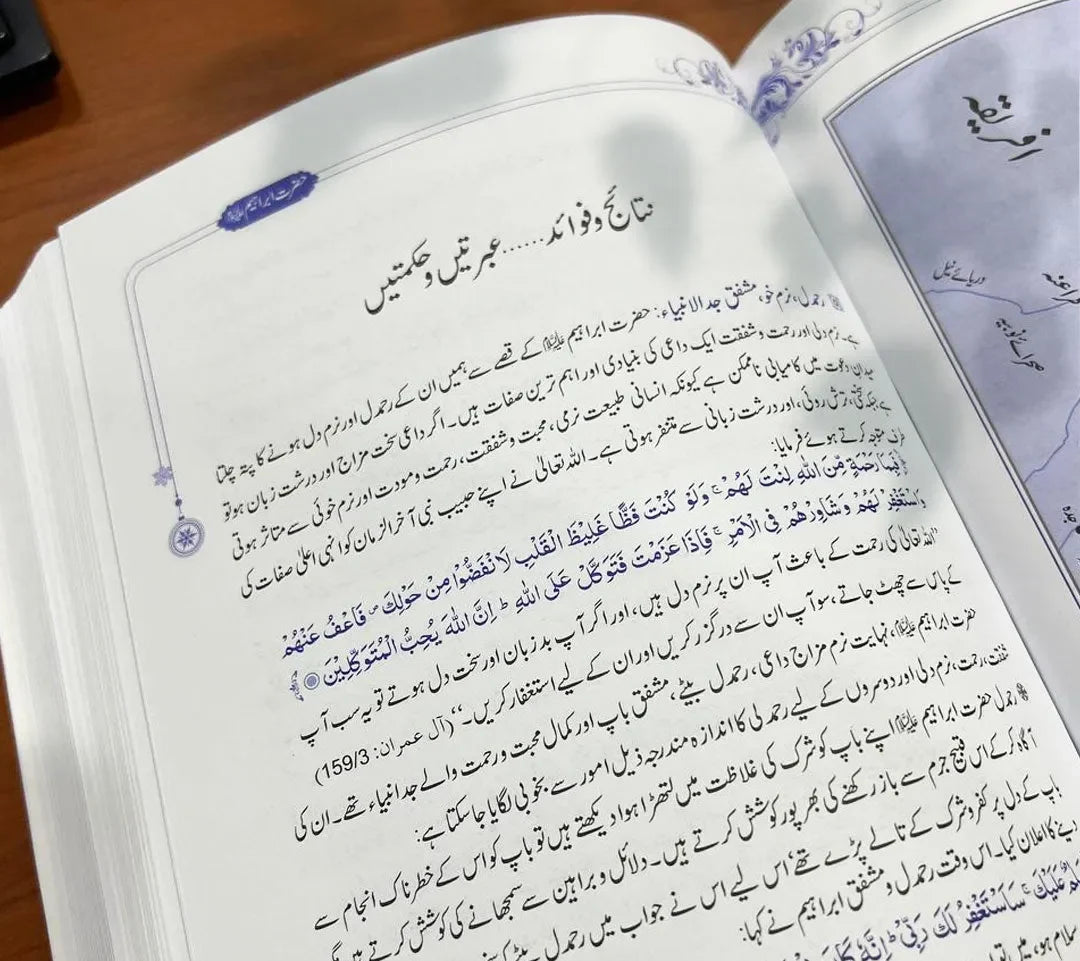 حضرت ابراہیم علیہ السلام
نتائج و فوائد......عبرتیں و حکمتیں
رحمدل، نرم خو، مشفق جد الانبیاء: حضرت ابراہیم علیہ السلام کے قصے سے ہمیں ان کے رحمدل اور نرم دل ہونے کا پتہ چلتا
ہے۔ نرم دلی اور رحمت و شفقت ایک داعی کی بنیادی اور اہم ترین صفات ہیں۔ اگر داعی سخت مزاج اور درشت زبان ہو تو
میدان دعوت میں کامیابی ناممکن ہے کیونکہ انسانی طبیعت نرمی، محبت و شفقت، رحمت و مودت اور نرم خوئی سے متاثر ہوتی
ہے جبکہ سختی، ترش روئی، اور درشت زبانی سے متنفر ہوتی ہے۔ اللہ تعالیٰ نے اپنے حبیب نبی آخر الزمان کو انہی اعلیٰ صفات کی
طرف متوجہ کرتے ہوئے فرمایا:
﴿فَبِمَا رَحْمَةٍ مِّنَ اللّٰهِ لِنْتَ لَهُمْ ۚ وَلَوْ كُنْتَ فَظًّا غَلِيْظَ الْقَلْبِ لَا نْفَضُّوْا مِنْ حَوْلِكَ ۪ فَاعْفُ عَنْهُمْ
وَاسْتَغْفِرْ لَهُمْ وَشَاوِرْهُمْ فِي الْاَمْرِ ۚ فَاِذَا عَزَمْتَ فَتَوَكَّلْ عَلَى اللّٰهِ ۭ اِنَّ اللّٰهَ يُحِبُّ الْمُتَوَكِّلِيْنَ ۝﴾
”اللہ تعالیٰ کی رحمت کے باعث آپ ان پر نرم دل ہیں، اور اگر آپ بد زبان اور سخت دل ہوتے تو یہ سب آپ
کے پاس سے چھٹ جاتے، سو آپ ان سے درگزر کریں اور ان کے لیے استغفار کریں۔“ (آل عمران: 159/3)
حضرت ابراہیم علیہ السلام، نہایت نرم مزاج داعی، رحمدل بیٹے، مشفق باپ اور کمال محبت و رحمت والے جد انبیاء تھے۔ ان کی
شفقت، رحمت، نرم دلی اور دوسروں کے لیے رحمدلی کا اندازہ مندرجہ ذیل امور سے بخوبی لگایا جا سکتا ہے:
رحمدل حضرت ابراہیم علیہ السلام اپنے باپ کو شرک کی غلاظت میں لتھڑا ہوا دیکھتے ہیں تو باپ کو اس کے خطرناک انجام سے
آگاہ کر کے اس قبیح جرم سے باز رکھنے کی بھرپور کوشش کرتے ہیں۔ دلائل و براہین سے سمجھانے کی کوشش کرتے ہیں
باپ کے دل پر کفر و شرک کے تالے پڑے تھے، اس لیے اس نے جواب میں رحمدل بیٹے کو
دینے کا اعلان کیا۔ اس وقت رحمدل و مشفق ابراہیم نے کہا:
عَلَيْكَ ۚ سَاَسْتَغْفِرُ لَكَ رَبِّيْ ۭ اِنَّهٗ كَانَ
سلام ہو، میں
افریقہ
دریائے نیل
صحرائے نوبیہ
جدہ